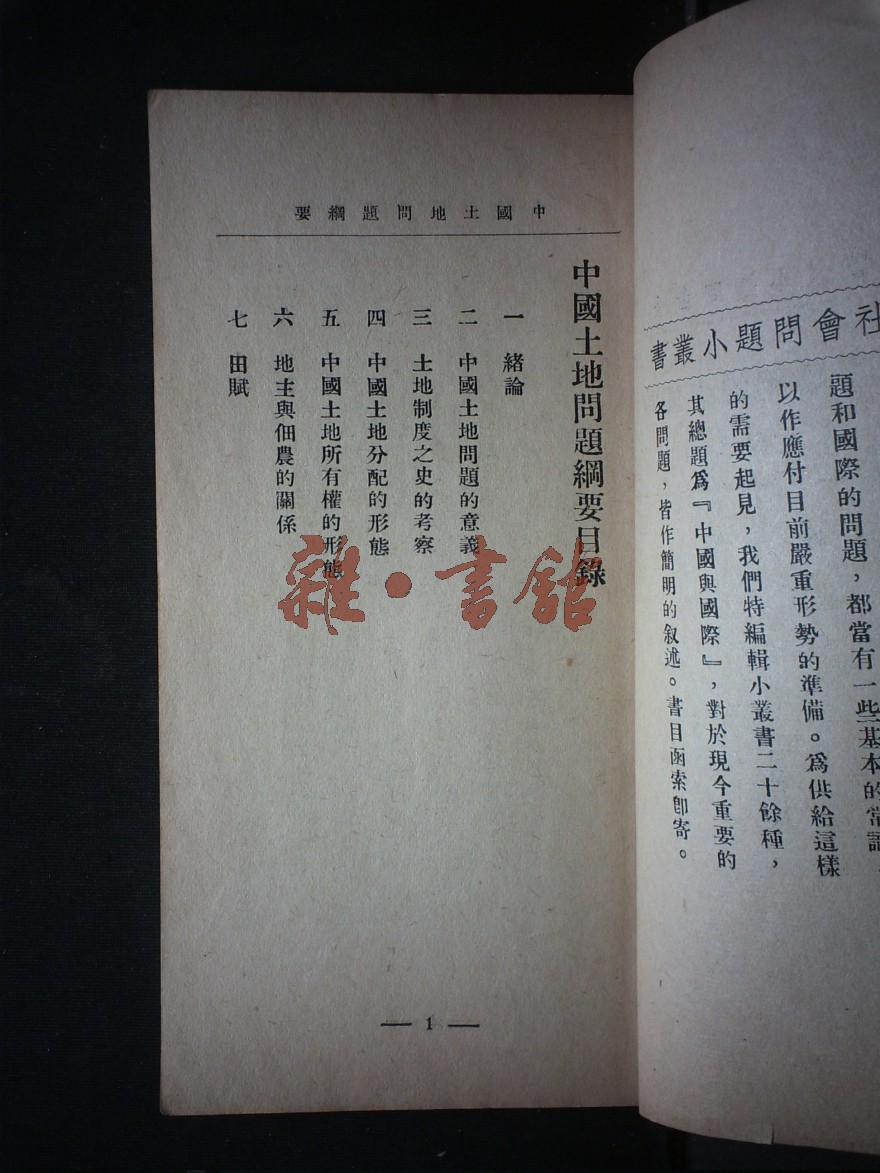 社會問題小叢書
題和國際的問題，都當有一些基本的常識，
以作應付目前嚴重形勢的準備。爲供給這樣
的需要起見，我們特編輯小叢書二十餘種，
其總題爲『中國與國際』，對於現今重要的
各問題，皆作簡明的叙述。書目函索卽寄。
中國土地問題綱要
中國土地問題綱要目錄
一 緒論
二 中國土地問題的意義
三 土地制度之史的考察
四 中國土地分配的形態
五 中國土地所有權的形態
六 地主與佃農的關係
七 田賦
— 1 —
雜·書館